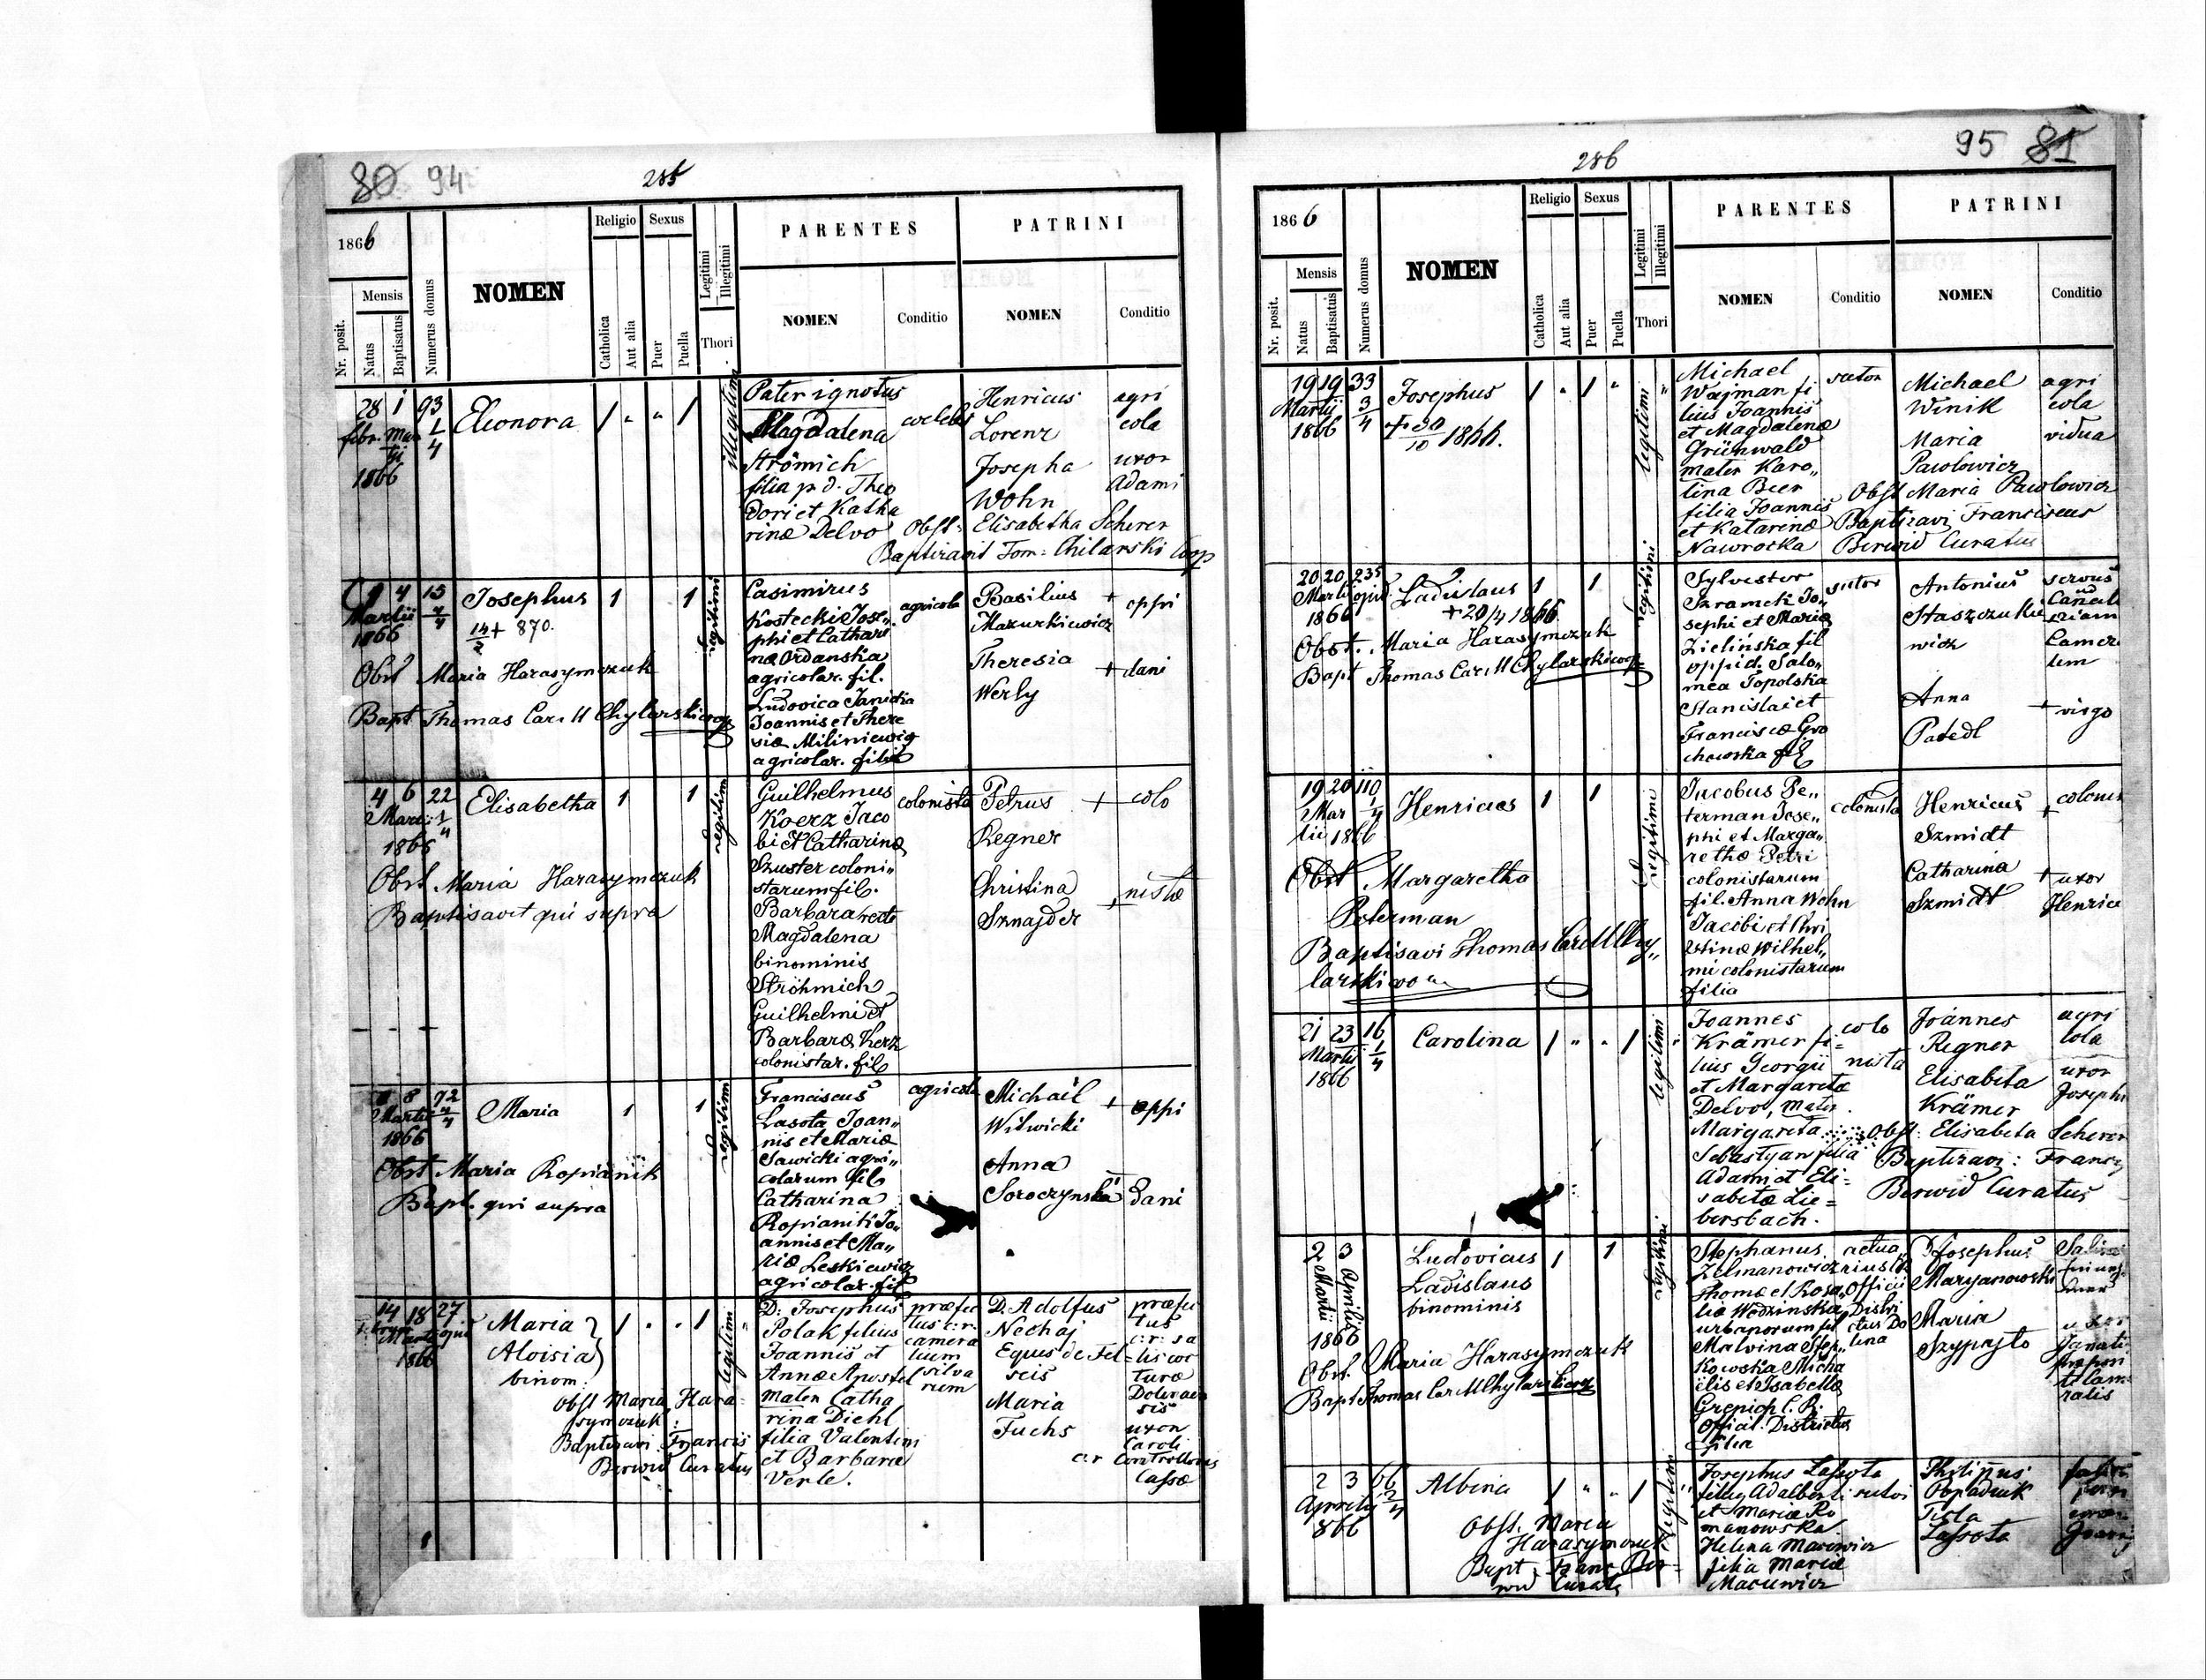 80 94
285
1866
Nr. posit.
Mensis
Natus
Baptisatus
Numerus domus
NOMEN
Religio
Catholica
Aut alia
Sexus
Puer
Puella
Legitimi
Illegitimi
Thori
PARENTES
NOMEN
Conditio
PATRINI
NOMEN
Conditio
28 1 93
febr. Mar
1/4
1866
Eleonora
1 " " 1
illegitimi
Pater ignotus
Magdalena
Strömich
filia p. d. Theo
dori et Katha
rinæ Delvo
coelebs
Henricus
Lorenz
Josepha
Wohn
agri
cola
uxor
Adami
Obst: Elisabetha Scherer
Baptizavit Tom: Chilarski Coop
4 15
Martii
1866
Josephus
14/2 + 870.
1 1
legitimi
Casimirus
Kostecki Jose„
phi et Cathari
næ Ordanska
agricolar. fil.
Ludovica Janicka
Joannis et There
siæ Miliniewicz
agricolar. filia
agricola
Basilius +
Mazurkiewicz
Theresia +
Werly
oppi
dani
Obst Maria Harasymczuk
Bapt Thomas Car. M Chylarski coop
4 6 22
Martii 1/4
1866
Elisabetha
1 1
legitimi
Guilhelmus
Koerz Jaco
bi et Catharinæ
Szuster coloni„
starum fil.
Barbara recte
Magdalena
binominis
Ströhmich
Guilhelmi et
Barbaræ Kerz
colonistar. fil
colonista
Petrus +
Regner
Christina
Sznajder +
colo
nistæ
Obst Maria Harasymczuk
Baptisavit qui supra
8 72
Martii
1866
Maria
1 1
legitimi
Franciscus
Lasota Joan„
nis et Mariæ
Sawicki agri„
colarum fil
Catharina
Kopianiti Jo„
annis et Ma„
riæ Leskiewicz
agricolar. fil
agricola
Michaël +
Witwicki
Anna
Soroczynska +
oppi
dani
Obst Maria Kopianik
Bapt. qui supra
14 18 27
Martii
1866
Maria
Aloisia
binom:
1 " " 1
legitimi
D: Josephus
Polak filius
Joannis et
Annæ Apostel
mater Catha
rina Diehl
filia Valentini
et Barbaræ
Verle.
præfec
tus c. r.
camera
lium
silva
rum
D. Adolfus
Nechaj
Equs de Fel=
seis
Maria
Fuchs
præfec
tus
c: r: sa
lis coc
turæ
Dolinen
sis
uxor
Caroli
c. r Controlloris
Cassæ
Obst Maria Hara
symczuk:
Baptizavi Francis
Berwid Curatus
286
95 81
1866
Nr. posit.
Mensis
Natus
Baptisatus
Numerus domus
NOMEN
Religio
Catholica
Aut alia
Sexus
Puer
Puella
Legitimi
Illegitimi
Thori
PARENTES
NOMEN
Conditio
PATRINI
NOMEN
Conditio
19 19 33
Martii 3/4
1866
Josephus
+ 30/10 1866.
1 " 1 "
legitimi
Michael
Wajman fi
lius Joannis
et Magdalenæ
Grünwald
mater Karo„
lina Beer
filia Joannis
et Katarinæ
Nawrocka
sator
Michael
Winik
Maria
Pawlowicz
agri
cola
vidua
Obst Maria Pawlowicz
Baptizavi Franciscus
Berwid Curatus
20 20 235
Martii opid
1866
Ladislaus
+ 20/4 1866
1 1
legitimi
Sylvester
Szramek Jo„
sephi et Mariæ
Zielińska fil
oppid. Salo„
mea Topolska
Stanislai et
Franciscæ Gro
chowska fil
sutor
Antonius
Staszczuke
wicz
Anna +
Patedl
servus
virgo
Obst. Maria Harasymczuk
Bapt Thomas Car. M Chylarski coop
19 20 110
Mar 1/4
tii 1866
Henricus
1 1
legitimi
Jacobus Pe„
terman Jose„
phi et Marga„
rethæ Petri
colonistarum
fil. Anna Wohn
Jacobi et Chri
stinæ Wilhel„
mi colonistarum
filia
colonista
Henricus +
Szmidt
Catharina +
Szmidt
colonis
uxor
Henrici
Obst Margaretha
Peterman
Baptisavi Thomas Car M Chy„
larski coop
21 23 16
Martii 1/4
1866
Carolina
1 " " 1
legitimi
Joannes
Krämer fi=
lius Georgii
et Margaretæ
Delvo, mater
Margareta
Sebastyan filia
Adami et Eli=
sabetæ Lie=
bersbach.
colo
nista
Joannes
Regner
Elisabeta
Krämer
agri
cola
uxor
Josephi
Obst: Elisabeta Scherer
Baptizavi: Franc
Berwid Curatus
2 3
Martii Aprilis
1866
Ludovicus
Ladislaus
binominis
1 1
legitimi
Stephanus
Zelmanowicz
Thomæ et Rosa„
liæ Wodzinska
urbanorum fil
Malvina Stef„
kowska Micha
ëlis et Isabellæ
Grepiopl C. R.
Offical. Districtus
filia
actua„
rius
Officii
Distri
ctus Do
lina
Josephus
Maryanowski
Maria
Szypajlo
uxor
Obst. Maria Harasymczuk
Bapt Thomas Car M Chylarski coop
2 3 66
Aprilis 2/4
866
Albina
1 " " 1
legitimi
Josephus Lassota
filius Adalberti
et Mariæ Ro
manowska.
Helena Macewicz
filia Mariæ
Macewicz
sutor
Philippus
Popadiuk
Tecla
Lassota
Obst. Maria
Harasymczuk
Bapt. Franc Ber=
wid Curatus